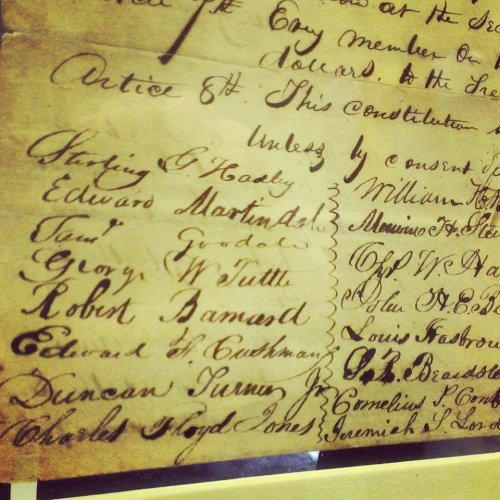 7th
at the Sec
Every member on
dollars. to the Tre
Artice 8th. This constitution
Unless by consent
Sterling G. Hadley
Edward Martindale
Saml Goodale
George W Tuttle
Robert Barnard
Edward F. Cushman
Duncan Turner Jr
Charles Floyd Jones
William
H.
Chs. W. Ha
H. E. B
Louis Hasbrou
Beardsle
Cornelius S. Con
Jeremiah S. Lord